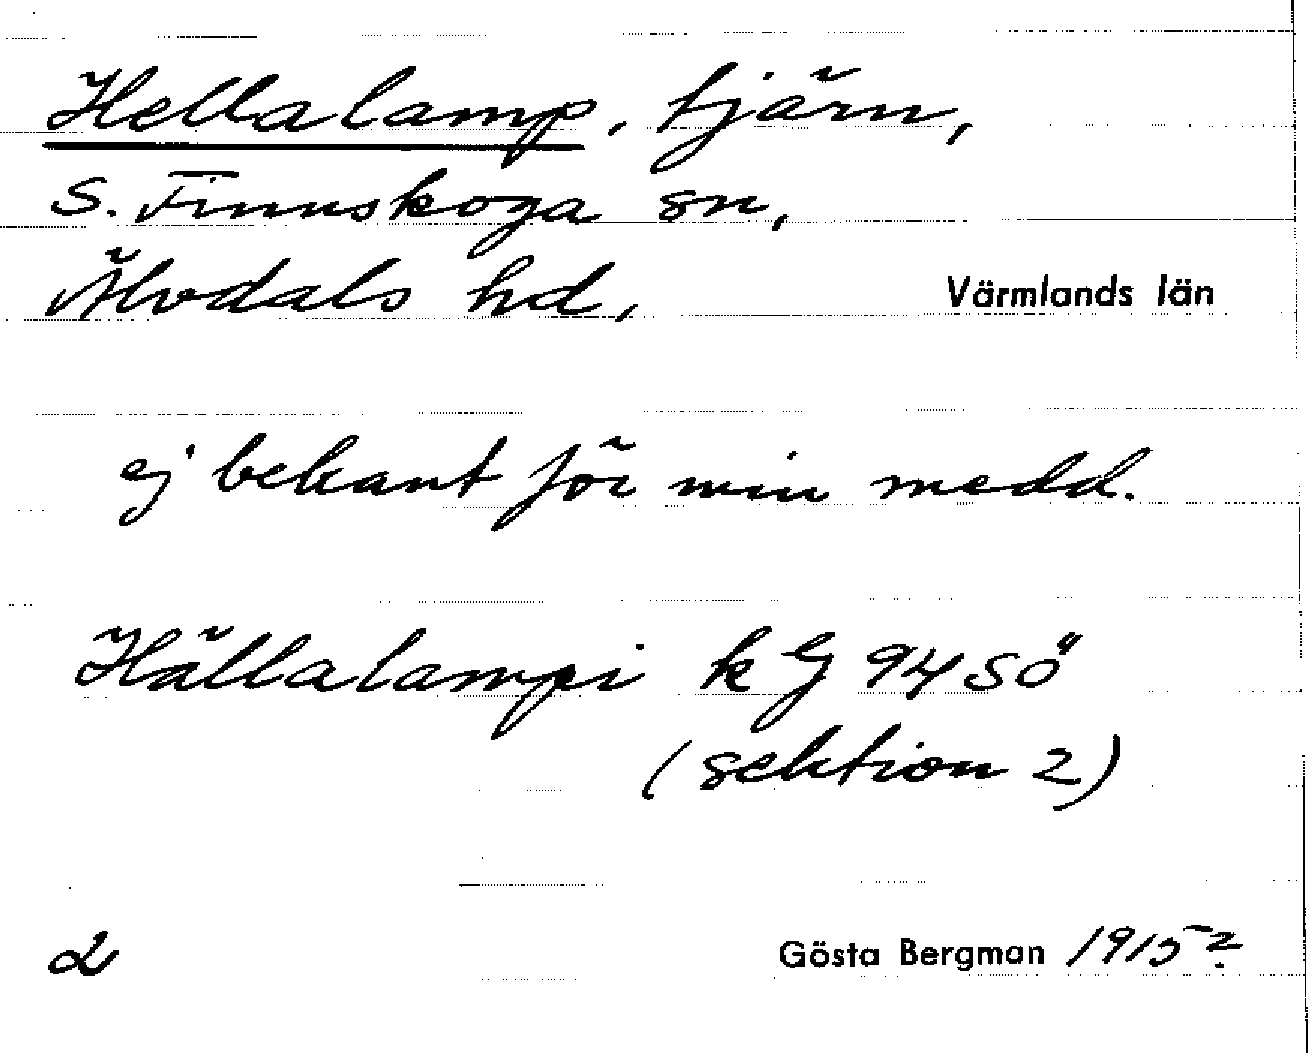 Hellalamp, tjärn,
S. Finnskoga sn,
Älvdals hd, Värmlands län
ej bekant för min medd.
Hällalampi kG 94 SÖ
(sektion 2)
2 Gösta Bergman 1915?